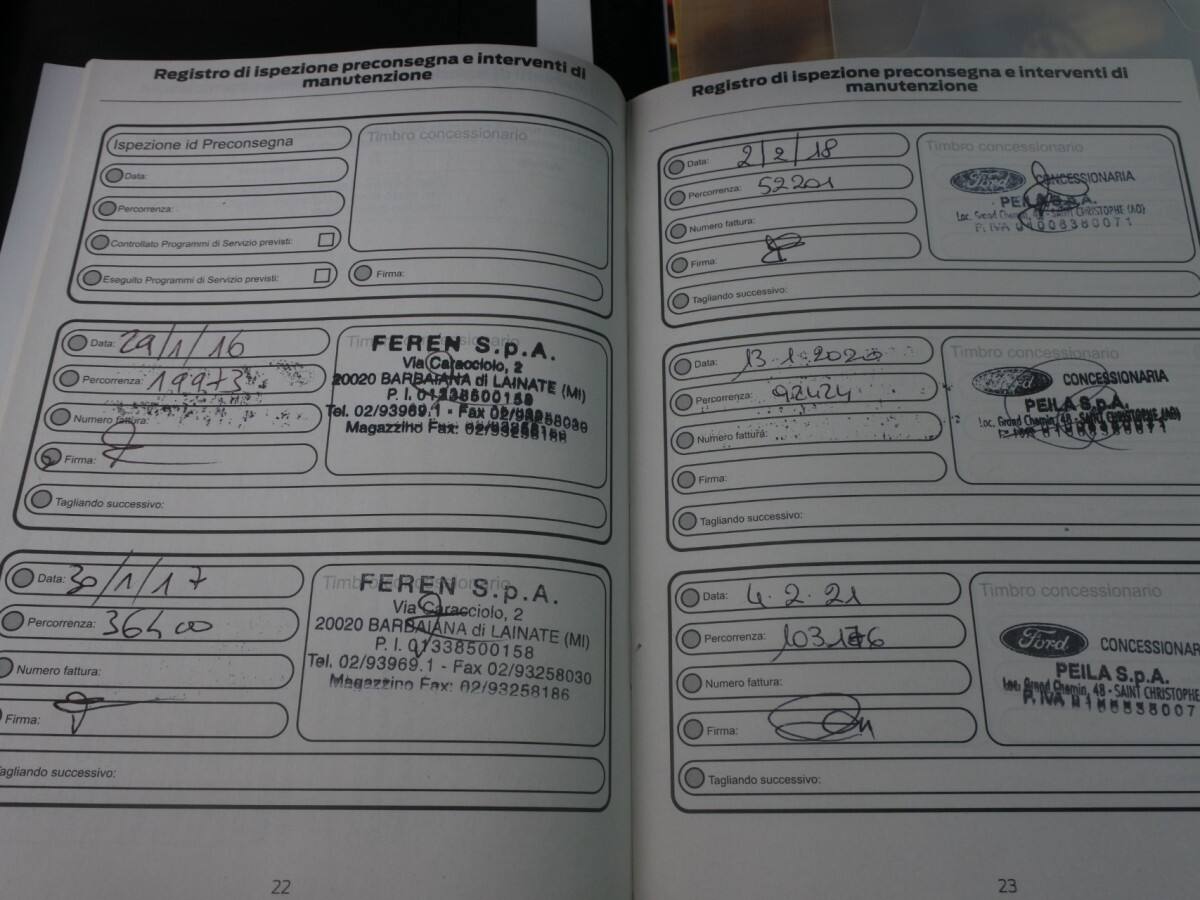 Registro di ispezione preconsegna e interventi di
manutenzione
Ispezione id Preconsegna
Timbro concessionario
Data:
Percorrenza:
Controllato Programmi di Servizio previsti:
Eseguito Programmi di Servizio previsti:
Firma:
Data: 29/1/16
Percorrenza: 19973
Numero fattura:
Firma:
Tagliando successivo:
FEREN S.p.A.
Via Caracciolo, 2
20020 BARBAIANA di LAINATE (MI)
P. I. 01338500158
Tel. 02/93969.1 - Fax 02/93258030
Magazzino Fax: 02/93258186
Data: 30/1/17
Percorrenza: 36400
Numero fattura:
Firma:
Tagliando successivo:
Timbro concessionario
FEREN S.p.A.
Via Caracciolo, 2
20020 BARBAIANA di LAINATE (MI)
P. I. 01338500158
Tel. 02/93969.1 - Fax 02/93258030
Magazzino Fax: 02/93258186
22
Registro di ispezione preconsegna e interventi di
manutenzione
Data: 2/2/18
Percorrenza: 52201
Numero fattura:
Firma:
Tagliando successivo:
Timbro concessionario
Ford CONCESSIONARIA
PEILA S.p.A.
Loc. Grand Chemin, 48 - SAINT CHRISTOPHE (AO)
P. IVA 01008380071
Data: 13.1.2020
Percorrenza: 92424
Numero fattura:
Firma:
Tagliando successivo:
Timbro concessionario
Ford CONCESSIONARIA
PEILA S.p.A.
Loc. Grand Chemin, 48 - SAINT CHRISTOPHE (AO)
Data: 4.2.21
Percorrenza:
Numero fattura:
Firma:
Tagliando successivo:
Timbro concessionario
Ford CONCESSIONAR
PEILA S.p.A.
Loc. Grand Chemin, 48 - SAINT CHRISTOPHE
P. IVA
23